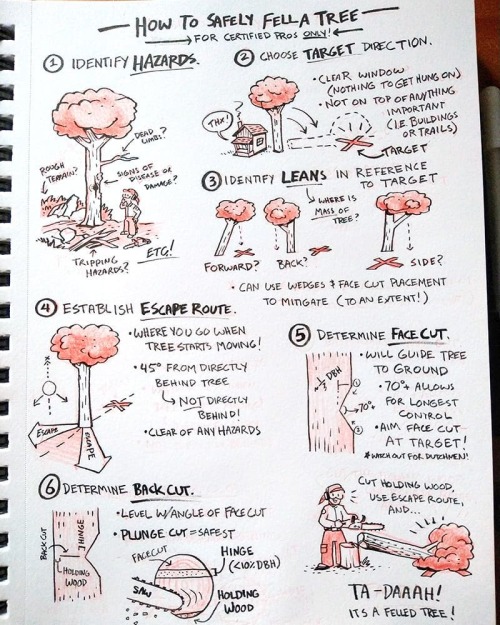 HOW TO SAFELY FELL A TREE
→FOR CERTIFIED PROS ONLY!←
① IDENTIFY HAZARDS.
DEAD LIMBS?
ROUGH TERRAIN?
SIGNS OF DISEASE OR DAMAGE?
TRIPPING HAZARDS?
ETC!
② CHOOSE TARGET DIRECTION.
• CLEAR WINDOW
(NOTHING TO GET HUNG ON)
• NOT ON TOP OF ANYTHING
IMPORTANT
(I.E. BUILDINGS
OR TRAILS)
THX!
TARGET
③ IDENTIFY LEANS IN REFERENCE
TO TARGET
WHERE IS
MASS OF
TREE?
FORWARD?
BACK?
SIDE?
• CAN USE WEDGES & FACE CUT PLACEMENT
TO MITIGATE (TO AN EXTENT!)
④ ESTABLISH ESCAPE ROUTE.
• WHERE YOU GO WHEN
TREE STARTS MOVING!
• 45° FROM DIRECTLY
BEHIND TREE
↳ NOT DIRECTLY
BEHIND!
• CLEAR OF ANY HAZARDS
ESCAPE
ESCAPE
⑤ DETERMINE FACE CUT.
• WILL GUIDE TREE
TO GROUND
• 70°+ ALLOWS
FOR LONGEST
CONTROL
• AIM FACE CUT
AT TARGET!
* WATCH OUT FOR DUTCHMEN!
DBH
①
70°+
②
⑥ DETERMINE BACK CUT.
• LEVEL W/ANGLE OF FACE CUT
• PLUNGE CUT = SAFEST
BACK CUT
HINGE
HOLDING
WOOD
FACE CUT
SAW
HINGE
(<10% DBH)
HOLDING
WOOD
CUT HOLDING WOOD,
USE ESCAPE ROUTE,
AND...
TA-DAAAH!
ITS A FELLED TREE!